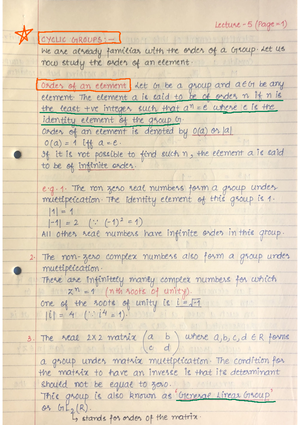 Lecture - 5 (Page - 1)
CYCLIC GROUPS :-
We are already familiar with the order of a Group. Let us
now study the order of an element.
Order of an element Let G be a group and a∈G be any
element. The element a is said to be of order n if n is
the least +ve integer such that aⁿ = e where e is the
identity element of the group G.
Order of an element is denoted by O(a) or |a|
O(a) = 1 iff a = e.
If it is not possible to find such n, the element a is said
to be of infinite order.
e.g. 1. The non zero real numbers form a group under
multiplication. The identity element of this group is 1.
|1| = 1
|-1| = 2 (∵ (-1)² = 1)
All other real numbers have infinite order in this group.
2. The non-zero complex numbers also form a group under
multiplication.
There are infinitely many complex numbers for which
zⁿ = 1 (nth roots of unity).
One of the roots of unity is i = √-1
|i| = 4 (∵ i⁴ = 1).
3. The real 2x2 matrix (a b
c d) where a,b,c,d ∈ R forms
a group under matrix multiplication. The condition for
the matrix to have an inverse is that its determinant
should not be equal to zero.
This group is also known as 'General Linear Group'
or GL₂(R).
↳ stands for order of the matrix.